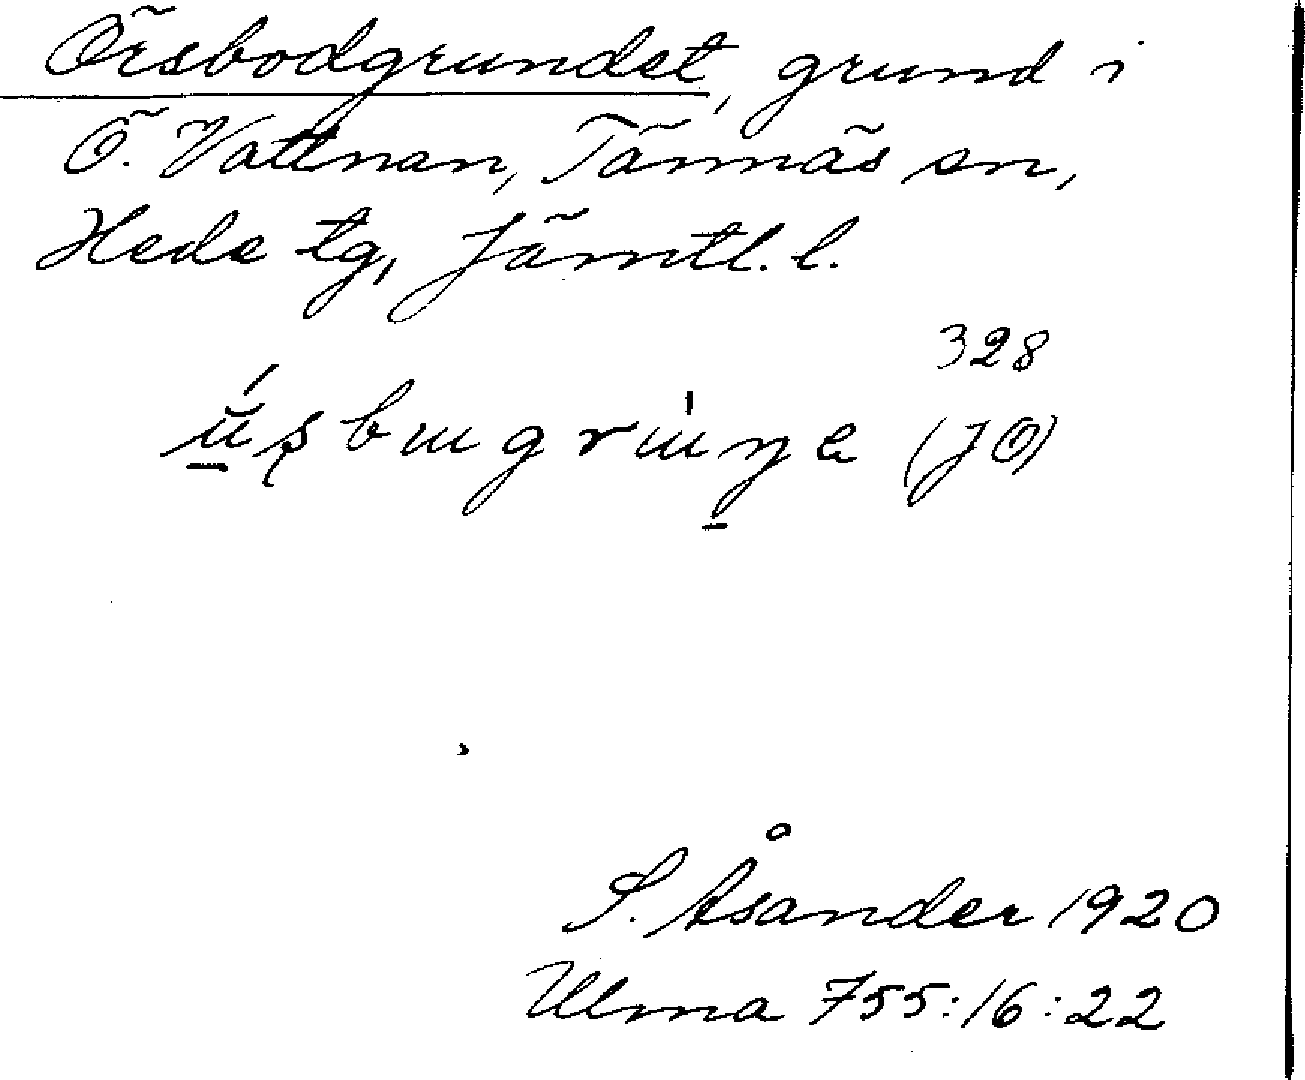 Örsbodgrundet, grund i
Ö. Vattnan, Tännäs sn,
Hede tg, Jämtl. l.
328
(JO)
S. Åsander 1920
Ulma 755:16:22